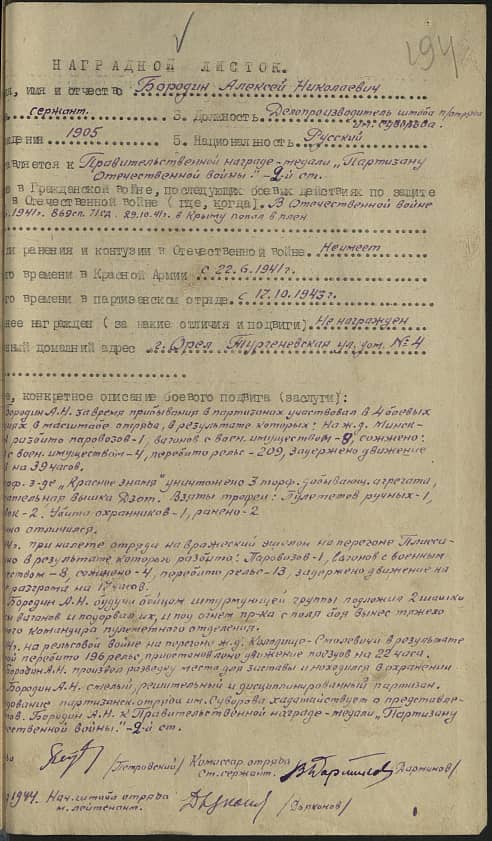 194
НАГРАДНОЙ ЛИСТОК.
имя и отчество Бородин Алексей Николаевич
сержант. 3. Должность Делопроизводитель штаба п/отряда
им. Суворова.
1905 5. Национальность Русский
вляется к Правительственной награде-медали „Партизану
Отечественной войны."-2й ст.
е в Гражданской войне, последующих боевых действиях по защите
в Отечественной войне (где, когда). В Отечественной войне
.1941г. 29.10.41г. в Крыму попал в плен
ли ранения и контузии в Отечественной войне. Не имеет
го времени в Красной Армии с 22.6.1941г.
го времени в партизанском отряде. с 17.10.1943г.
нее награжден (за какие отличия и подвиги). Не награжден
ный домашний адрес г. Орел Тургеневская ул. дом. № 4
е, конкретное описание боевого подвига (заслуги):
Бородин А.Н. за время прибывания в партизанах участвовал в 4 боевых
циях в масштабе отряда, в результате которых: На ж.д. Минск-
разбито паровозов-1, вагонов с воен. имуществом-8, сожжено:
с воен. имуществом-4, перебито рельс-209, задержено движение
на 39 часов.
рф. з-де „Красное знамя" уничтожено 3 торф. добывающ. агрегата,
ательная вышка Дзот. Взяты трофеи: Пулеметов ручных-1,
ок-2. Убито охранников-1, ранено-2
но отличался.
4г. при налете отряда на вражеский эшелон на перегоне Плисса-
но в результате которых разбито: Паровозов-1, вагонов с военным
ством-8, сожжено-4, перебито рельс-13, задержено движение на
разгрома на 17 часов.
Бородин А.Н. будучи бойцом штурмующей группы подложил 2 шашки
вагонов и подорвал их, и под огнем пр-ка с поля боя вынес тяжело
ого командира пулеметного отделения.
4г. на рельсовой войне на перегоне ж.д. Колодищо-Смолевичи в результате
рой перебито 196 рельс, приостановлено движение поездов на 22 часа.
Бородин А.Н. произвел разведку места для заставы и находился в охранении
Бородин А.Н. смелый, решительный и дисциплинированный партизан.
дование партизанск. отряда им. Суворова хадатайствует о представле-
тов. Бородин А.Н. к Правительственной награде-медали „Партизану
ественной войны."-2й ст.
/Петровский/ Комиссар отряда
ст. сержант.
1944. Нач. штаба отряда
м. лейтенант.